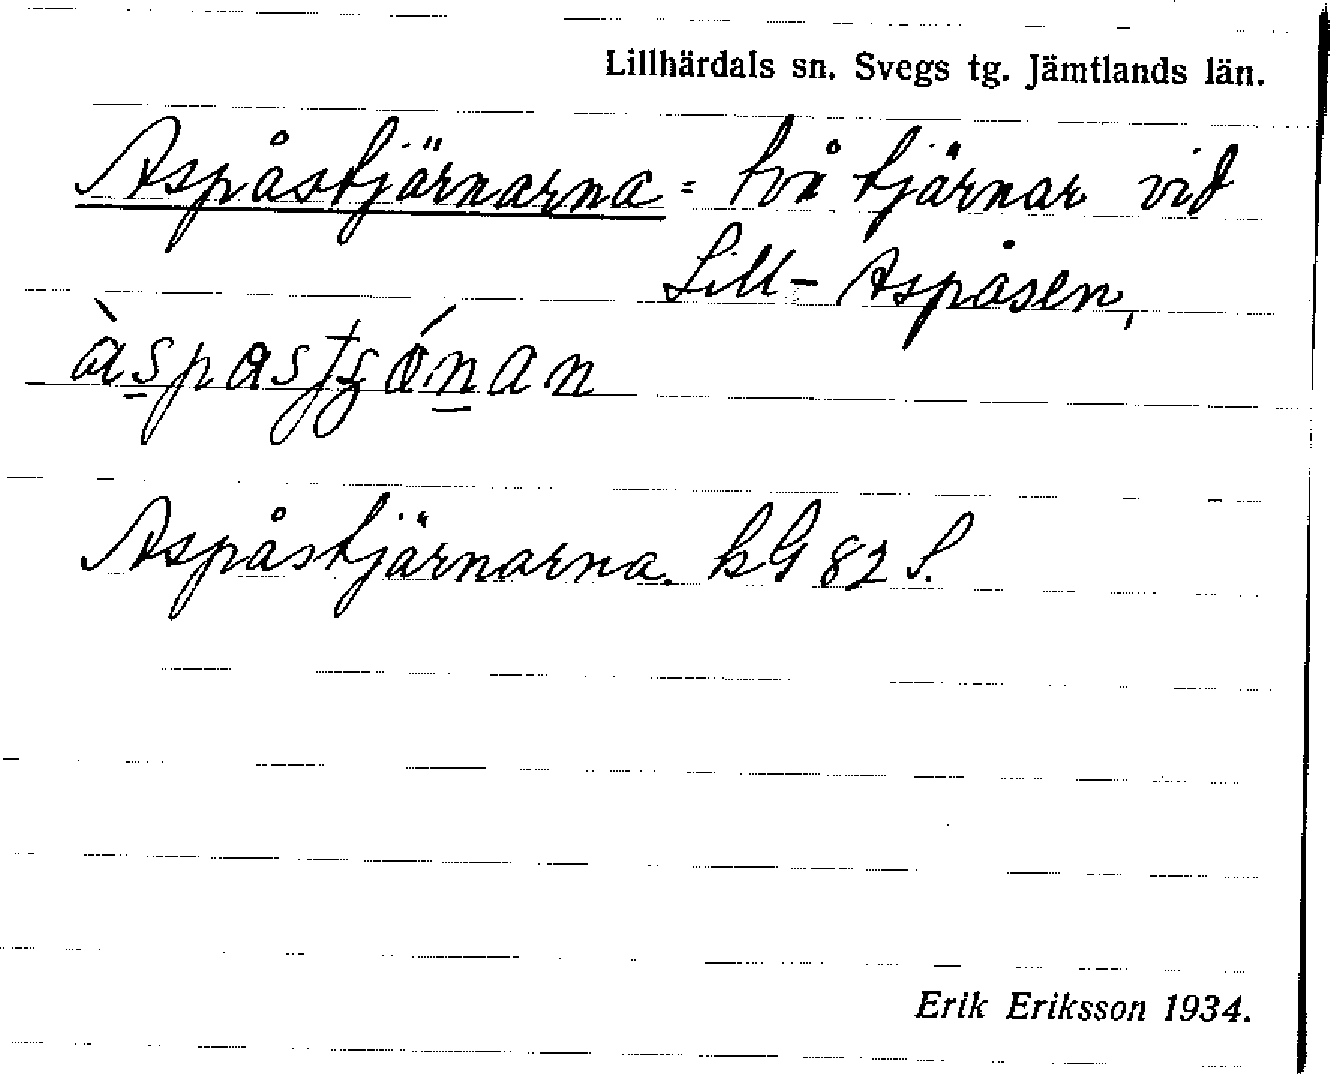 Lillhärdals sn. Svegs tg. Jämtlands län.
Aspåstjärnarna = två tjärnar vid
Lill-Aspåsen,
Aspåstjärnarna. kG 82 S.
Erik Eriksson 1934.